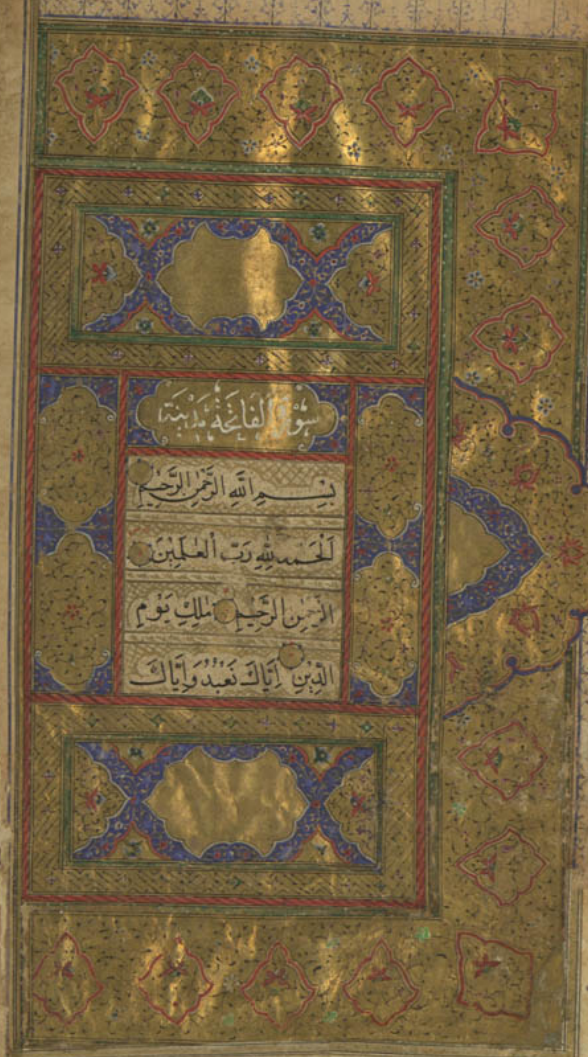 سورة الفاتحة مدنية
بِسْمِ اللّٰهِ الرَّحْمٰنِ الرَّحِيْمِ
اَلْحَمْدُ لِلّٰهِ رَبِّ الْعٰلَمِيْنَ
الرَّحْمٰنِ الرَّحِيْمِ مٰلِكِ يَوْمِ
الدِّيْنِ اِيَّاكَ نَعْبُدُ وَاِيَّاكَ